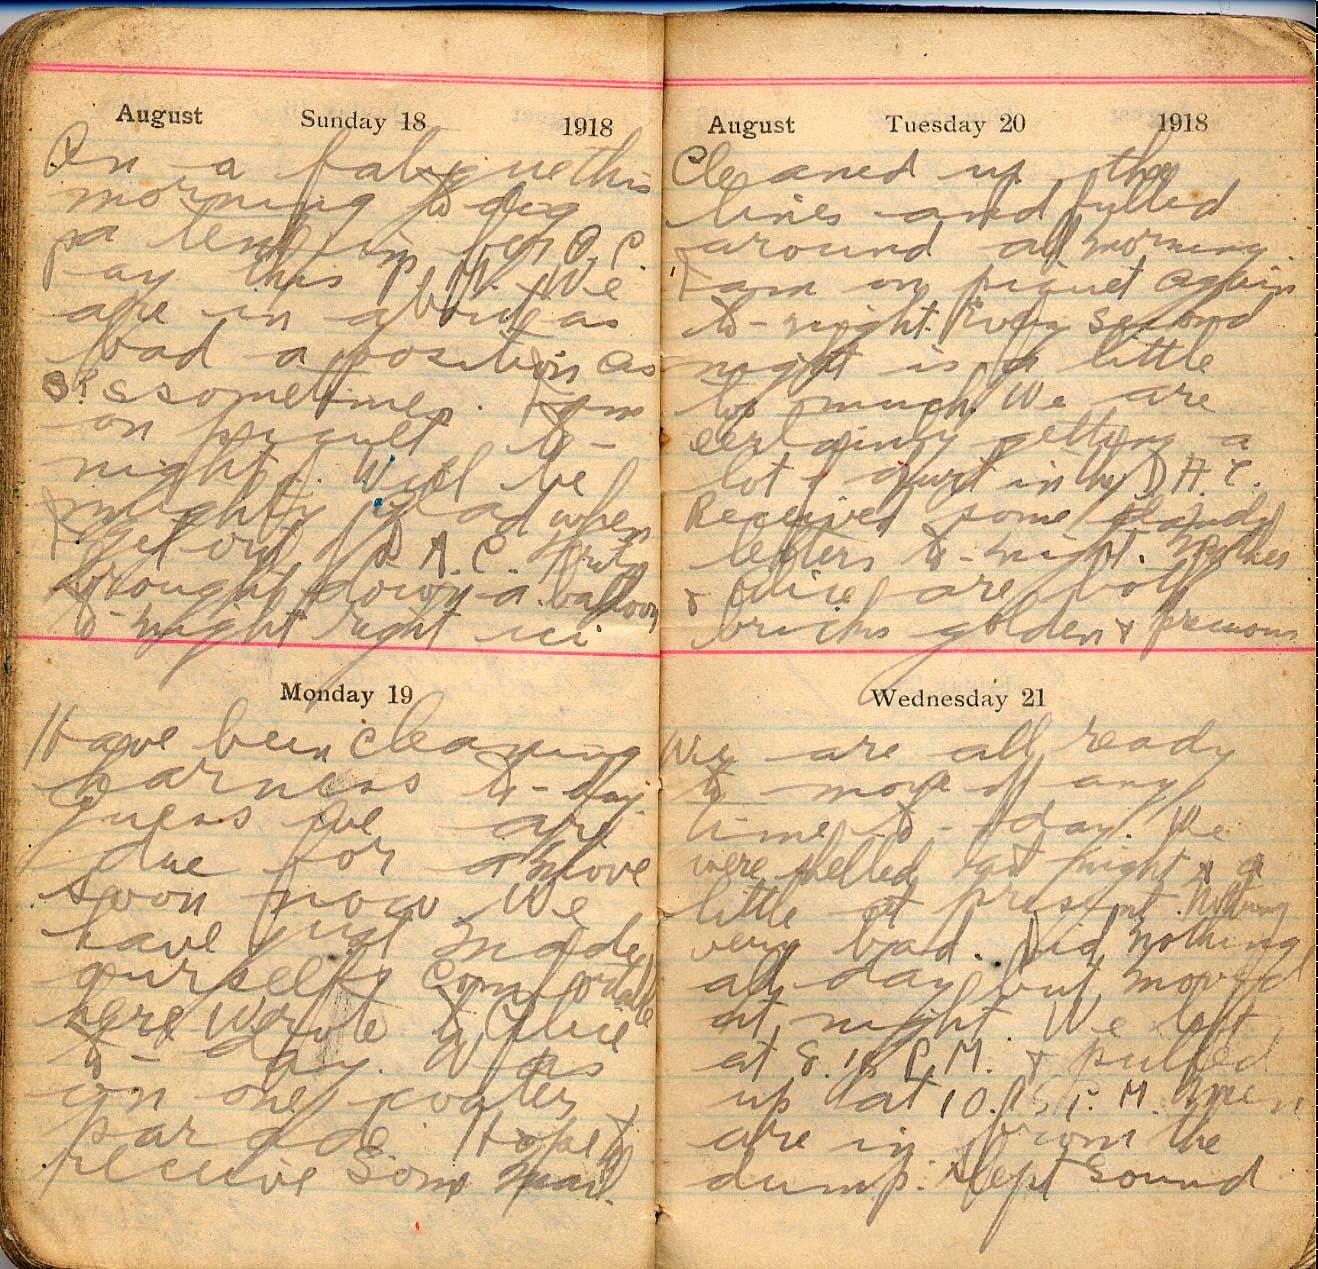 August Sunday 18 1918
On a fatigue this
morning to dig
a tent in for O.C.
pay this P.M. We
are in about as
bad a position as
sometimes. I am
on piquet to-
night. Will be
mighty glad when
I get out of D.A.C. Fritz
brought down a balloon
to-night right ici
Monday 19
Have been cleaning
harness to-day
guess we are
due for a move
soon now We
have just made
ourselfs comfortable
here Wrote to Alice
to-day. Was
on one water
parade. Hope to
receive some mail.
August Tuesday 20 1918
Cleaned up the
lines and fulled
around all morning
I am on piquet again
to-night. Every second
night is a little
to much. We are
certainly getting a
lot of in the D.A.C.
Received some dandy
letters to-night. Mother
& Alice are both
bricks golden & precious
Wednesday 21
We are all ready
to move off any
time to-day. We
were shelled last night & a
little at present. Nothing
very bad. Did nothing
all day but moved
at night. We left
at 8.15 P.M. & pulled
up at 10.15 P.M. men
are in from the
dump. Slept sound